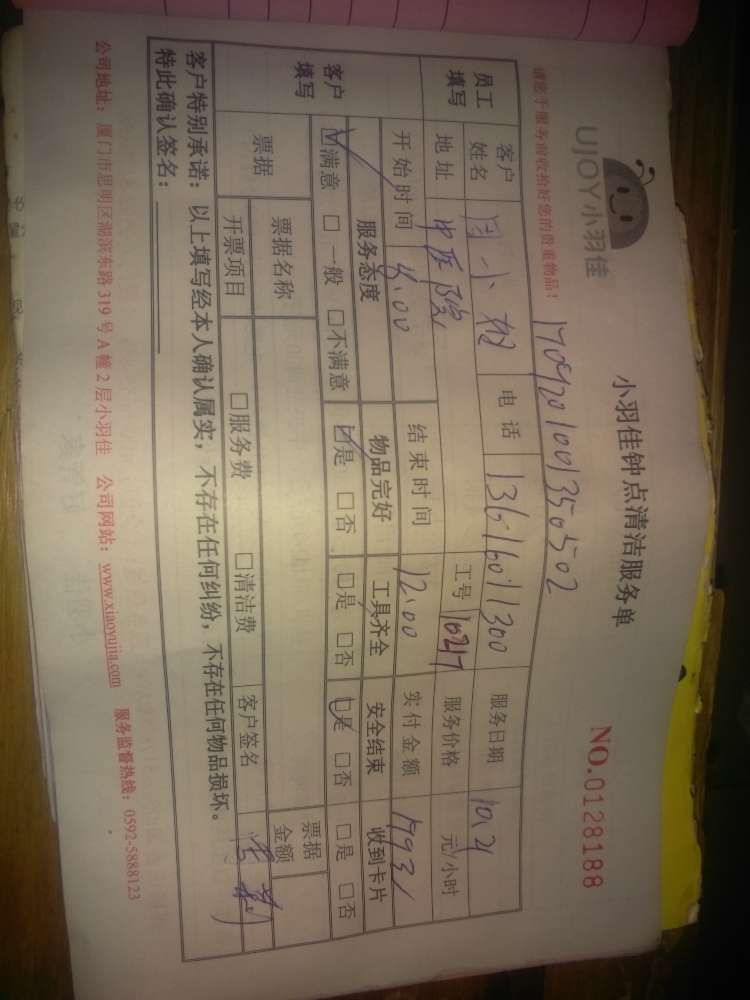 UJOY小羽佳
小羽佳钟点清洁服务单
NO.0128188
1709201001350502
请您于服务前收拾好您的贵重物品!
员工填写
客户姓名 周小
电话 13616011300
服务日期 10.21
地址 中医院
工号 10217
服务价格 元/小时
开始时间 8:00
结束时间 12:00
实付金额
客户填写
服务态度 物品完好 工具齐全 安全结束 收到卡片
☑满意 □一般 □不满意 ☑是 □否 ☑是 □否 ☑是 □否 □是 □否
票据
票据名称
票据金额
开票项目 □服务费 □清洁费 客户签名
客户特别承诺:以上填写经本人确认属实,不存在任何纠纷,不存在任何物品损坏。
特此确认签名:
公司地址:厦门市思明区湖滨东路 319 号 A 幢 2 层小羽佳 公司网站:www.xiaoyujia.com 服务监督热线:0592-5888123